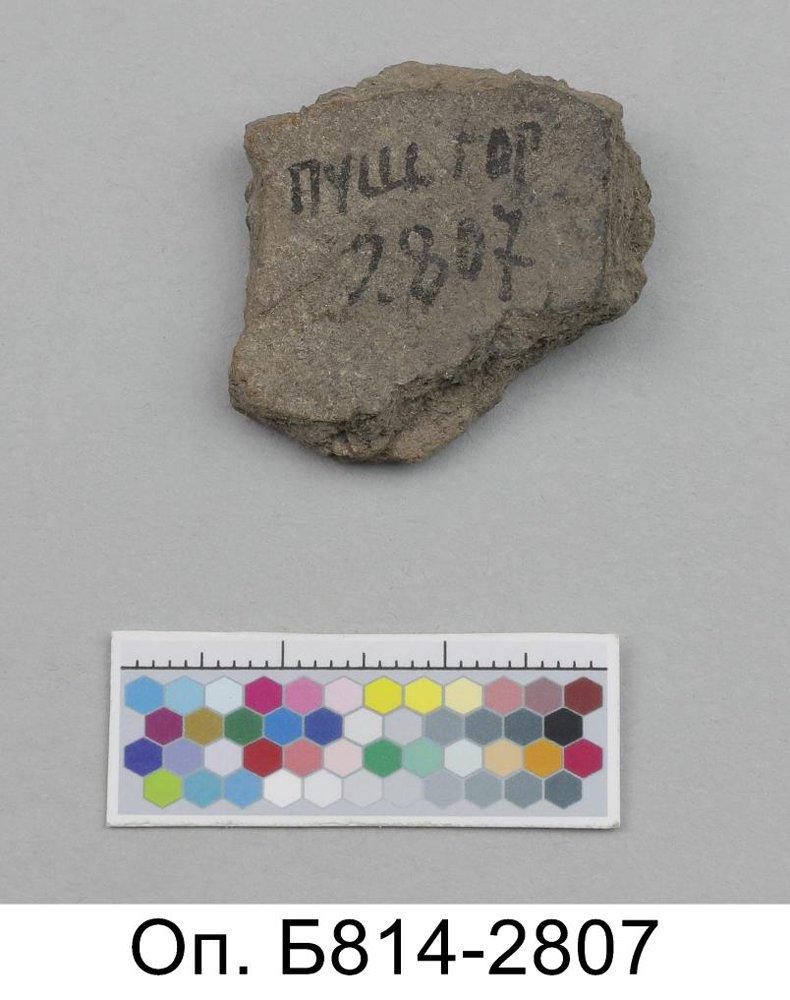 ПУЩ ГОР
2807
Оп. Б814-2807